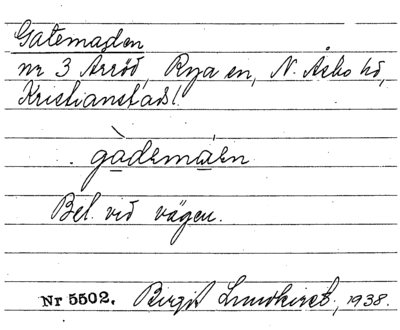 Gatemaden
nr 3 Arröd, Rya sn, N. Åsbo hd,
Kristianstads l.
gàdemáen
Bel. vid vägen.
Nr 5502. Birgit Lundkvist, 1938.